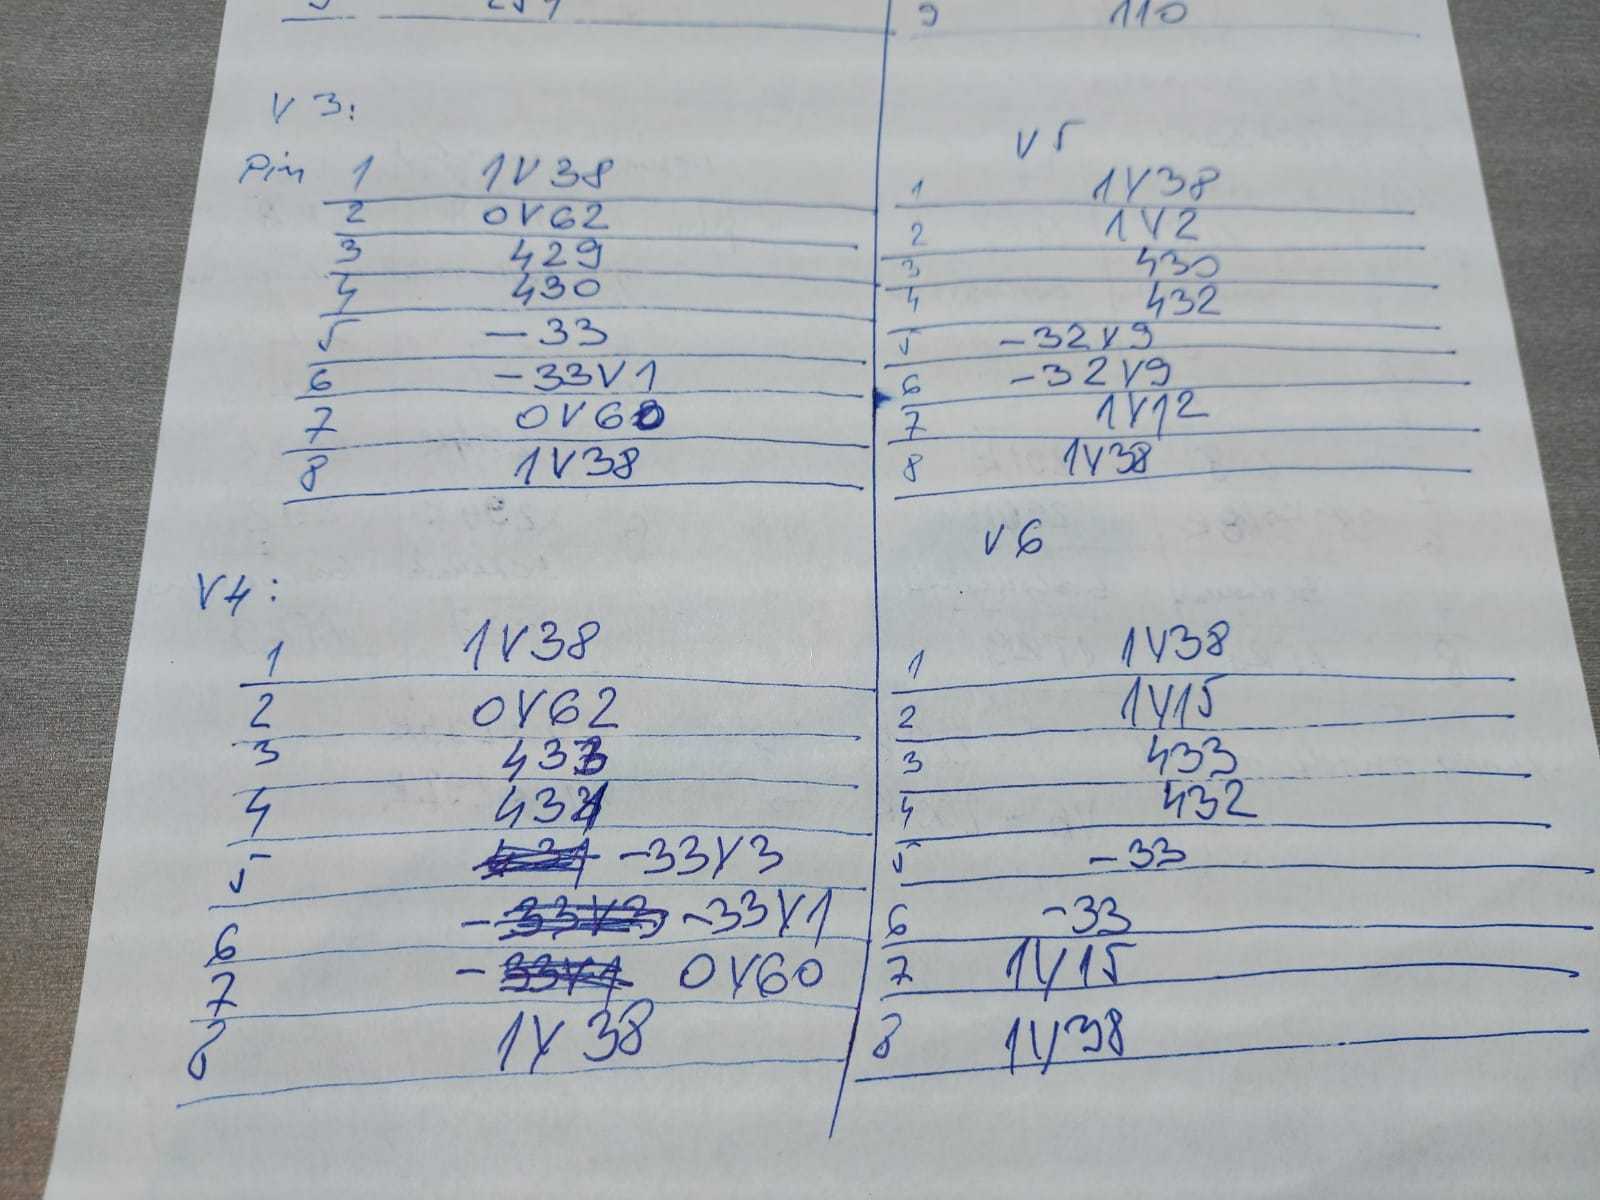 9 110
V 3:
Pin 1 1V38
2 0V62
3 429
4 430
5 -33
6 -33V1
7 0V60
8 1V38
V4:
1 1V38
2 0V62
3 433
4 431
5 -33V3
6 -33V1
7 0V60
8 1V38
V5
1 1V38
2 1V2
3 430
4 432
5 -32V9
6 -32V9
7 1V12
8 1V38
V6
1 1V38
2 1V15
3 433
4 432
5 -33
6 -33
7 1V15
8 1V38